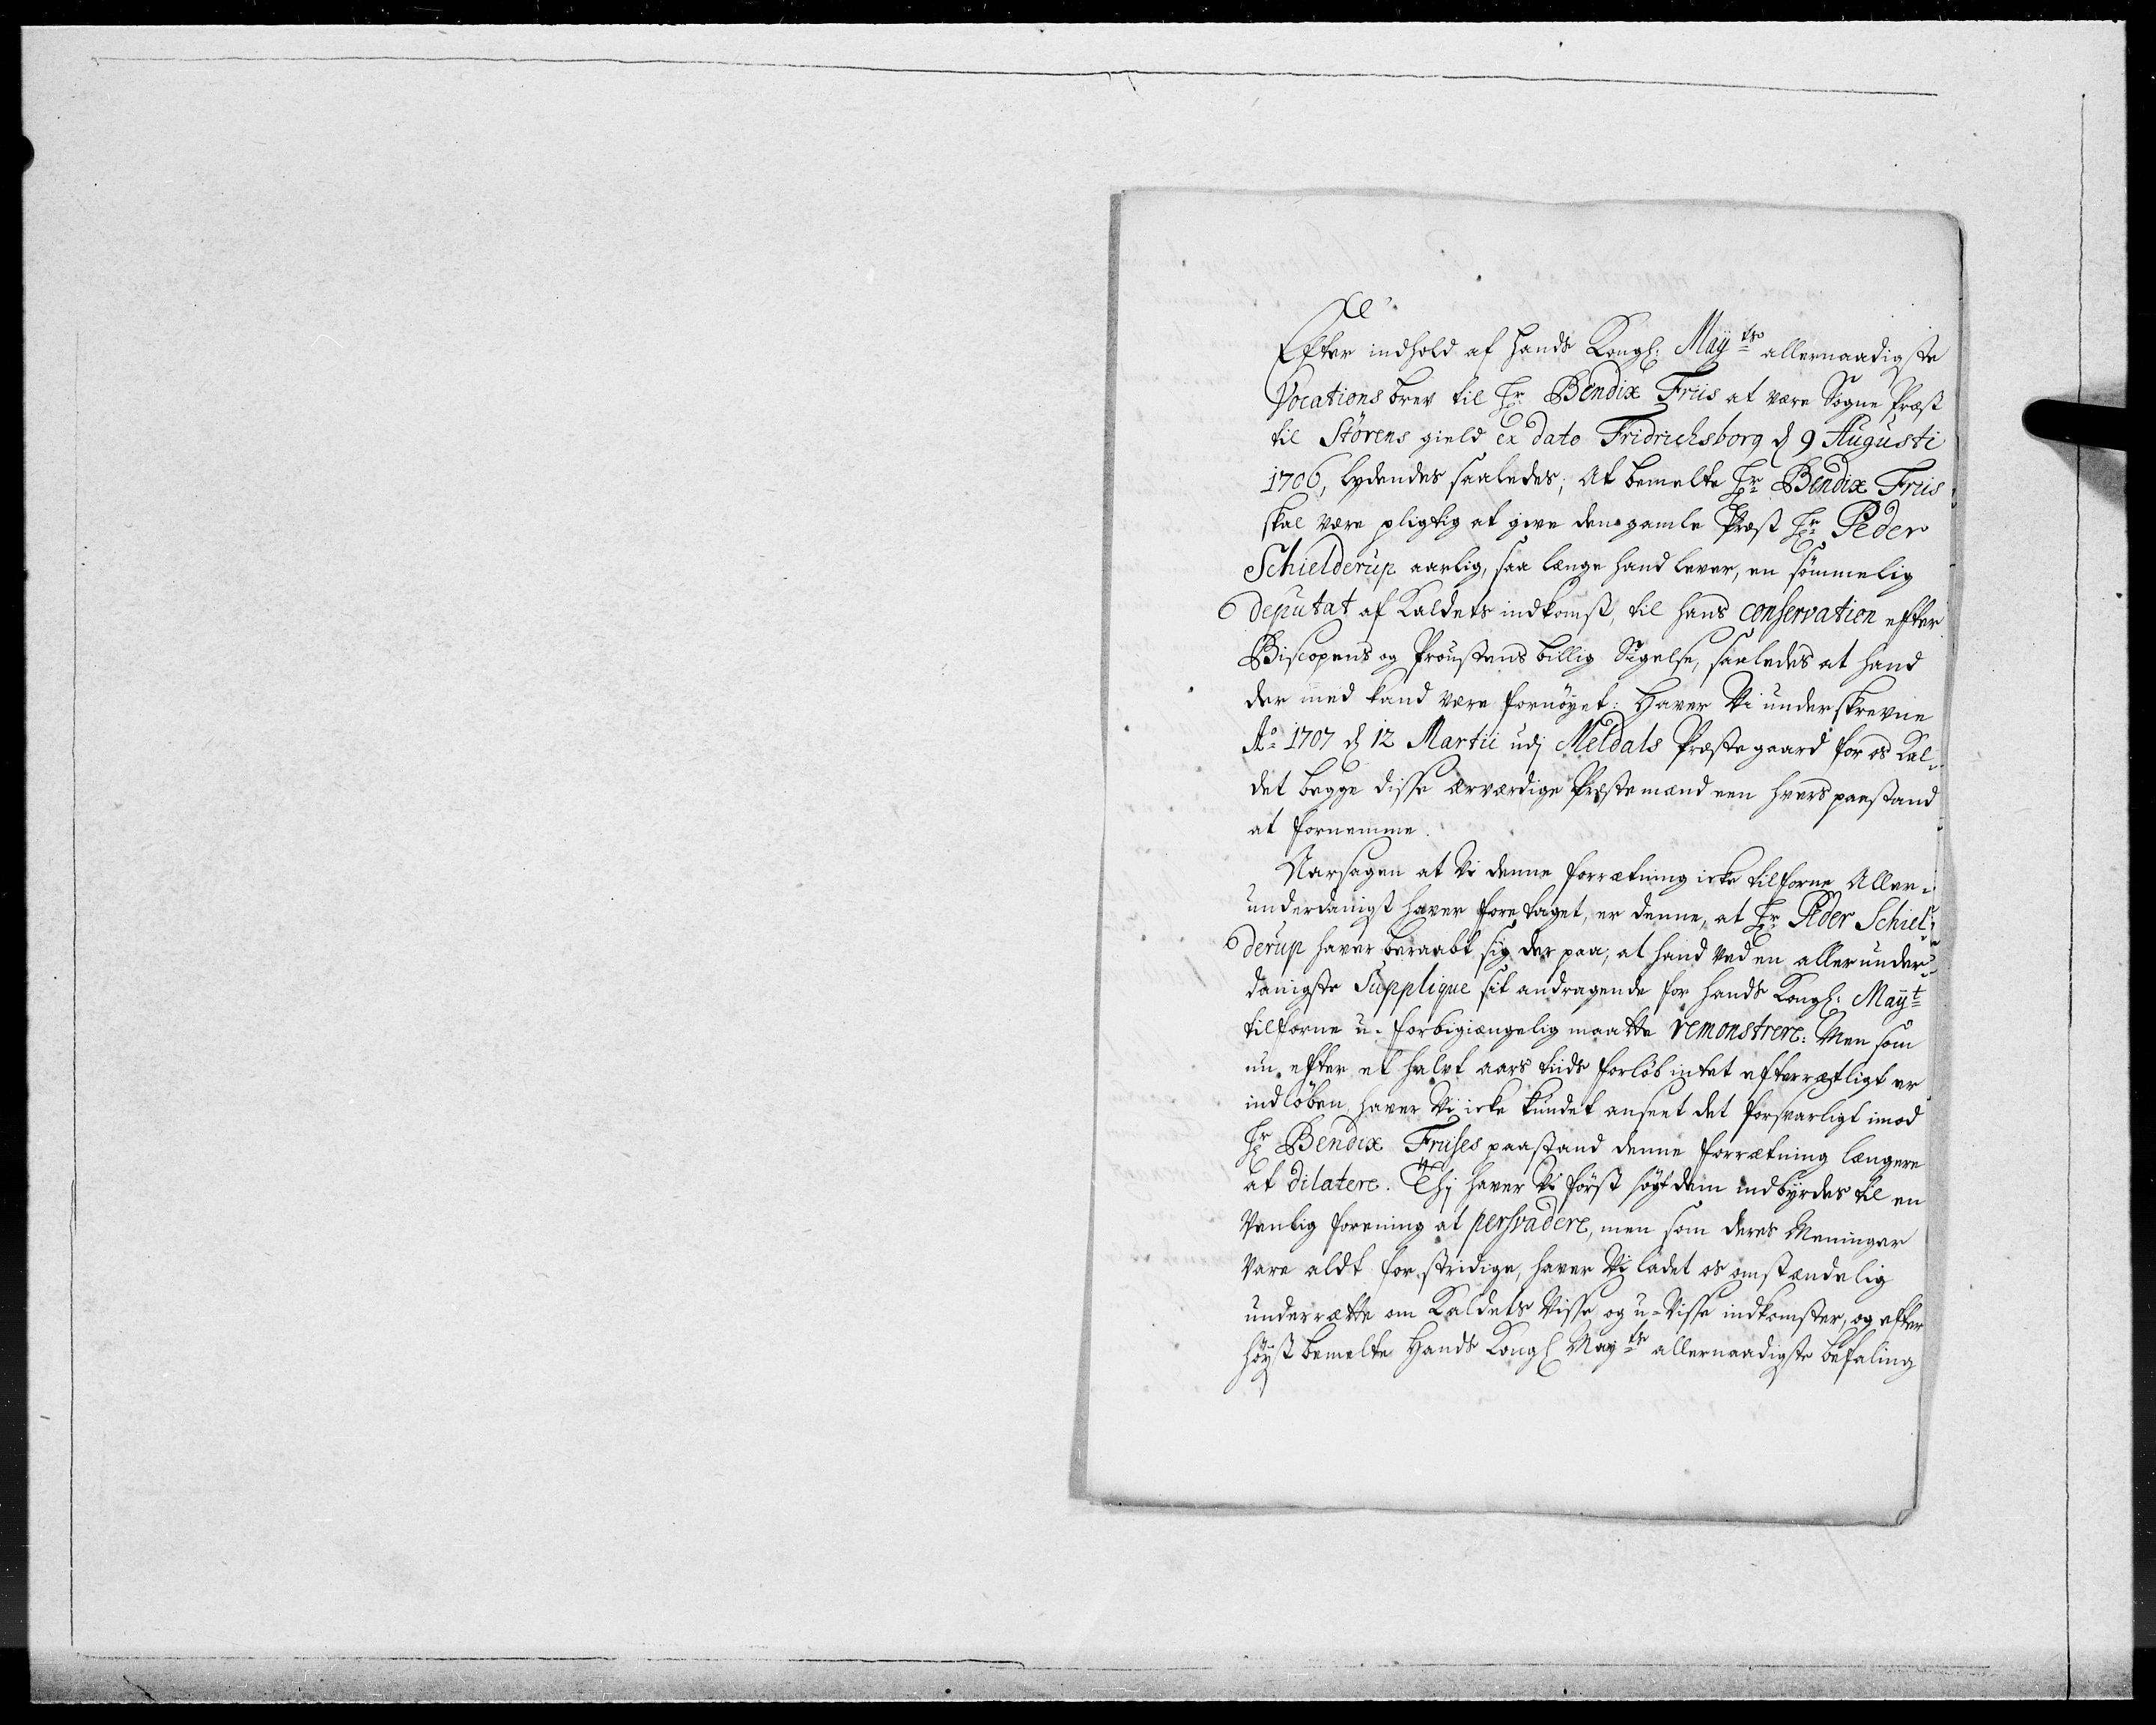 Efter indhold af hands Kongl: Mayts allernaadigste
Vocations brev til Hr Bendix Friis at være Sogne Præst
til Störens gield ex dato Fridrichsborg d 9 Augusti
1706, lydendes saaledes; At bemelte Hr Bendix Friis
skal være pligtig at give den gamle Præst Hr Peder
Schielderup aarlig, saa længe hand lever, en sömmelig
deputat af Kaldets indkomst, til hans conservation efter
Biscopens og Proustens billig Sigelse, saaledes at hand
der med kand være fornöyet: Haver Vi underskrevne
Ao 1707 d 12 Martii udj Meldals Præstegaard for os Kal-
det begge disse ærværdige Præstemænd een hvers paastand
at fornemme.
Aarsagen at Vi denne forrætning icke tilforne Aller-
underdanigst haver foretaget, er denne, at Hr Peder Schiel-
derup haver beraabt sig der paa, at hand ved en allerunder-
danigste Supplique sit andragende for hands Kongl: Mayt
tilforne u-forbigiængelig maatte remonstrere: Men som
nu efter et halvt aars tiids forlöb intet efterrætligt er
indlöben, haver Vi icke kundet anseet det forsvarligt imod
Hr Bendix Friises paastand denne forrætning længere
at dilatere. Thj haver Vi först sögt dem indbyrdes til en
Venlig forening at persvadere, men som deres Meninger
vare aldt for stridige, haver Vi ladet os omstændelig
underrætte om Kaldets Visse og u-Visse indkomster, og efter
höyst bemelte Hands Kongl Mayts allernaadigste befaling